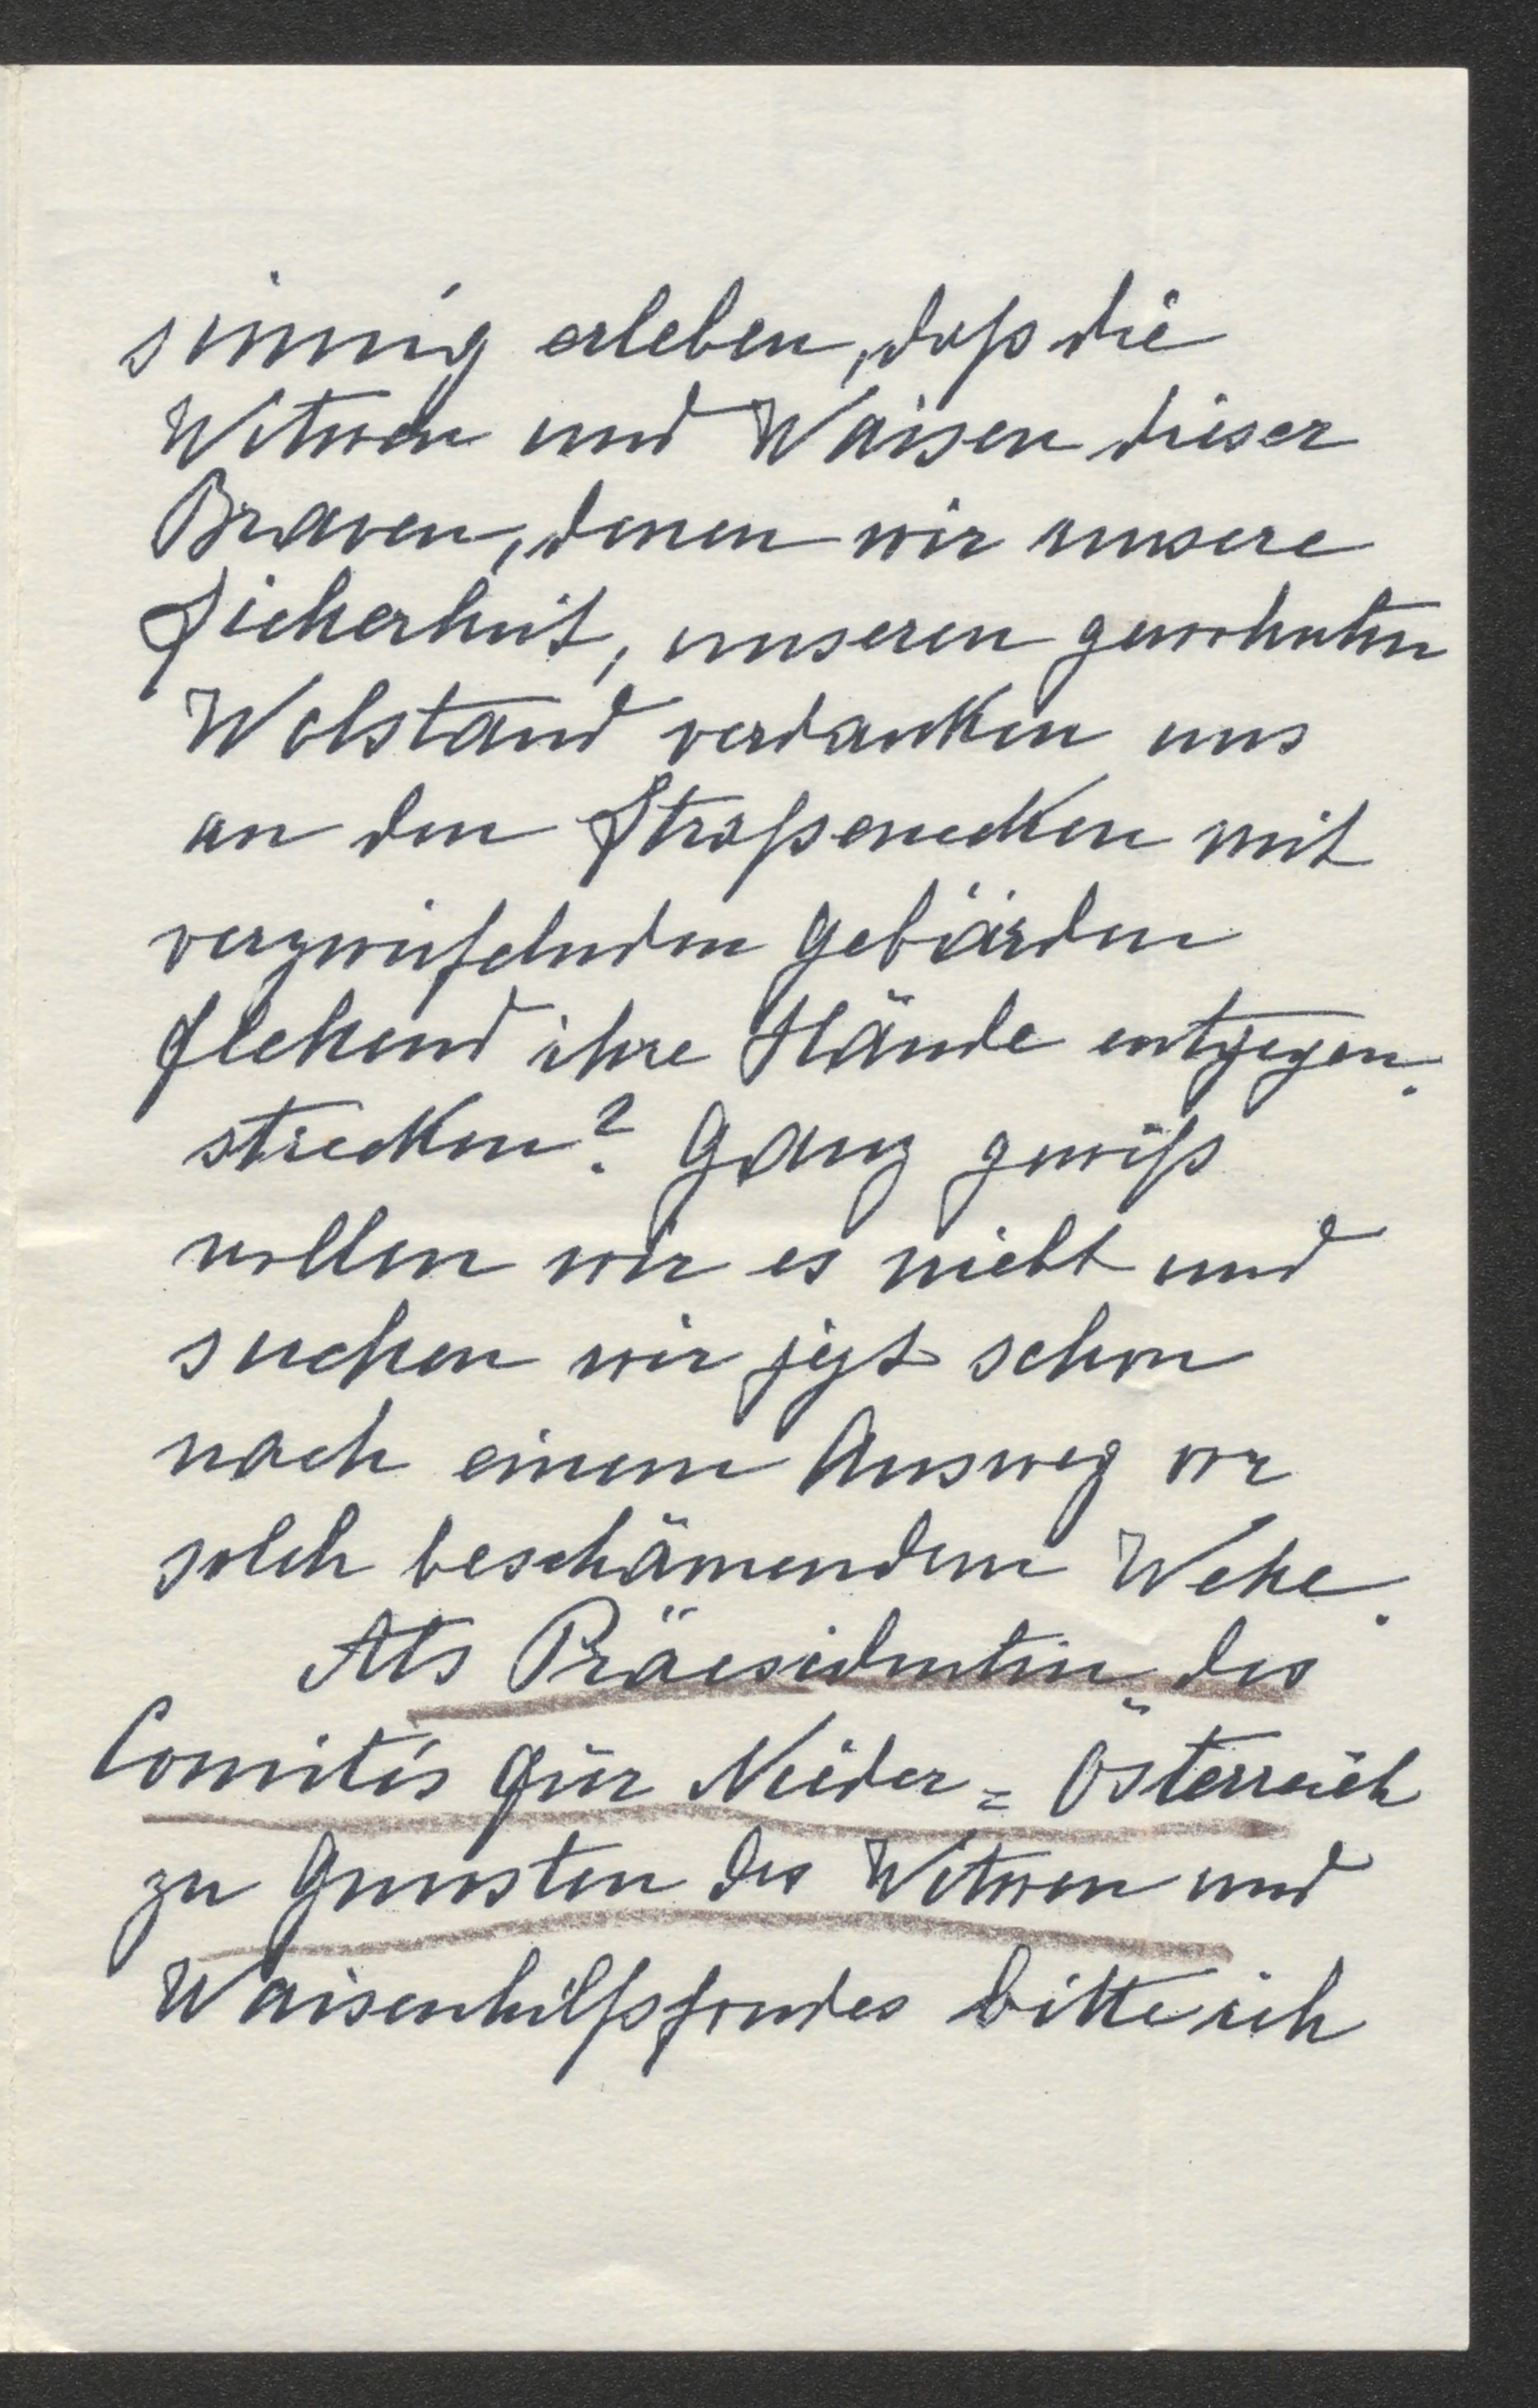 sinnig erleben, daß die
Witwen und Waisen dieser
Braven, denen wir unsere
Sicherheit, unseren gewohnten
Wolstand verdanken uns
an den Straßenecken mit
verzweifelnden Gebärden
flehend ihre Hände entgegen
strecken? Ganz gewiß
wollen wir es nicht und
suchen wir jezt schon
nach einem Ausweg vor
solch beschämendem Wehe.
Als Präesidentin des
Comités für Nieder=Österreich
zu Gunsten des Witwen und
Waisenhilfsfondes bitte ich